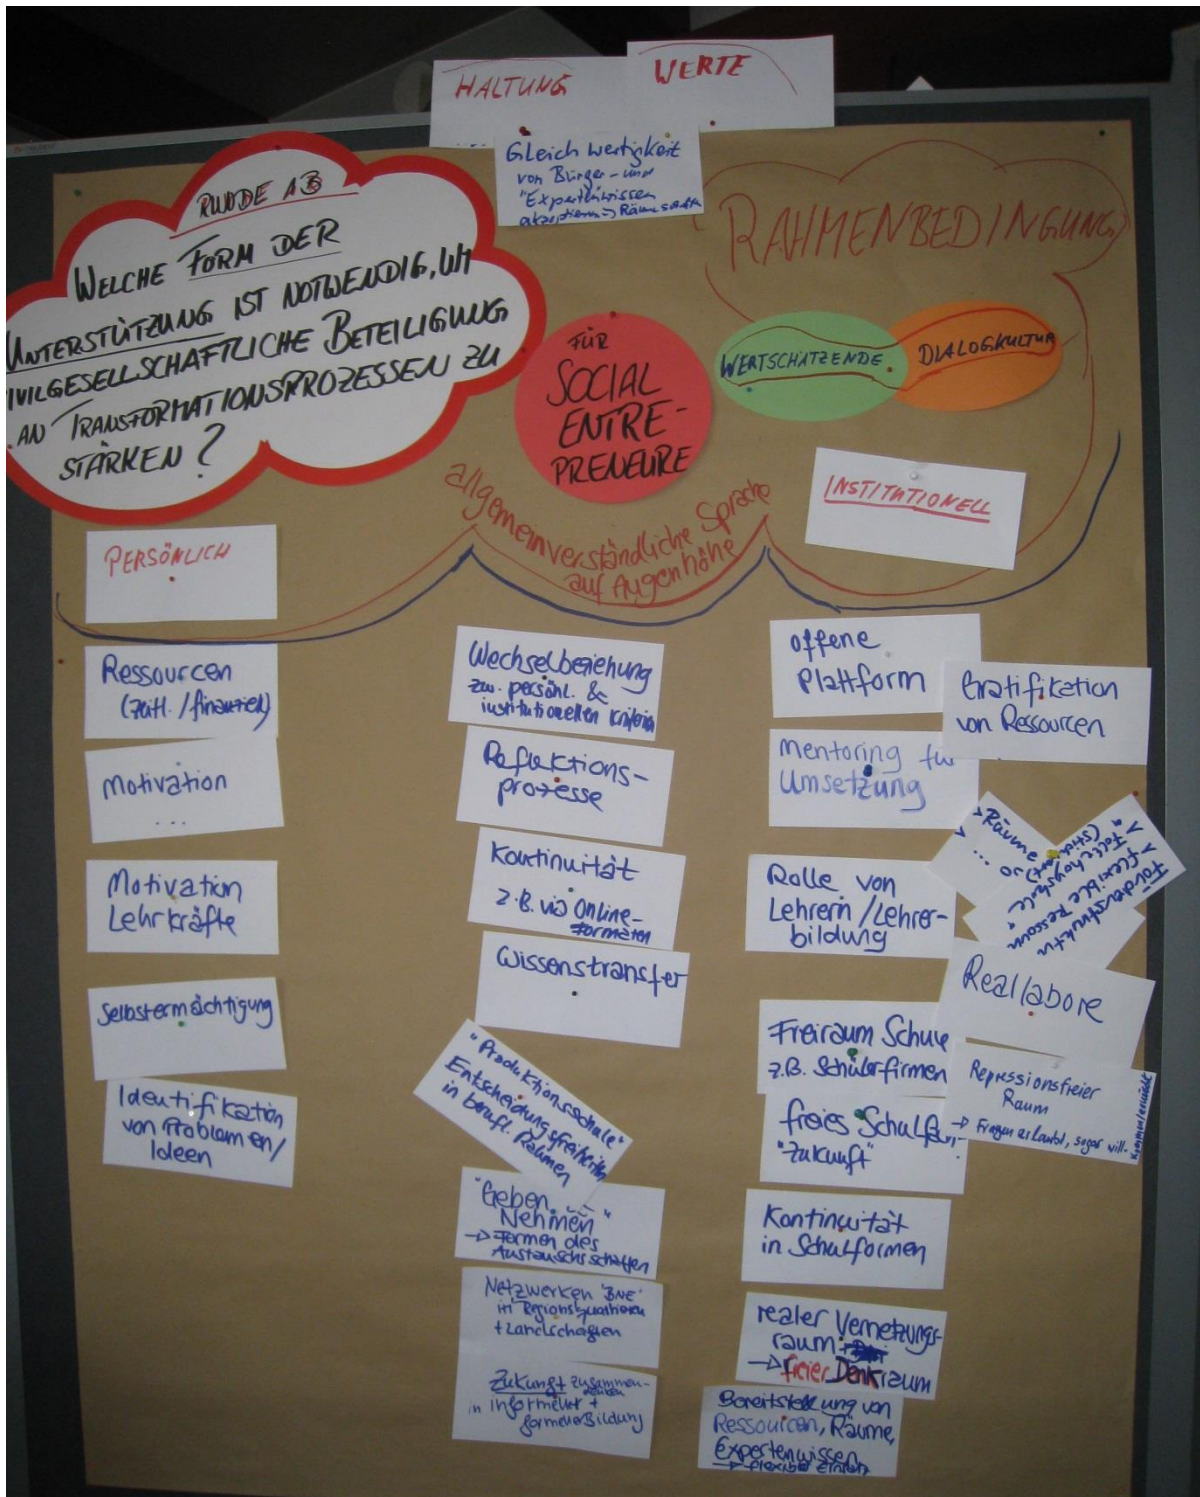 HALTUNG
WERTE
Gleichwertigkeit
von Bürger- und
"Expertenwissen
akzeptieren → Räume
RUNDE
WELCHE FORM DER
UNTERSTÜTZUNG IST NOTWENDIG, UM
IVILGESELLSCHAFTLICHE BETEILIGUNG
AN TRANSFORMATIONSPROZESSEN ZU
STÄRKEN?
RAHMENBEDINGUNG
FÜR
SOCIAL
ENTRE-
PRENEURE
WERTSCHÄTZENDE
DIALOGKULTUR
allgemeinverständliche Sprache
auf Augenhöhe
INSTITUTIONELL
PERSÖNLICH
Ressourcen
(zeitl./finanziell)
Motivation
...
Motivation
Lehrkräfte
Selbstermächtigung
Identifikation
von Problemen/
Ideen
Wechselbeziehung
zw. persönl. &
institutionellen Kriterien
Reflektions-
prozesse
Kontinuität
z.B. via Online-
formaten
Wissenstransfer
"Produktionsschule"
Entscheidungsfreiheiten
in berufl. Rahmen
"Geben
Nehmen"
→ Formen des
Austauschs schaffen
Netzwerken 'BNE'
in
+ Landschaften
Zukunft zusammen-
in informeller +
formeller Bildung
offene
Plattform
Mentoring für
Umsetzung
Rolle von
Lehrern/Lehrer-
bildung
Freiraum Schule
z.B. Schülerfirmen
freies Schulfach
"Zukunft"
Kontinuität
in Schulformen
realer Vernetzungs-
raum
→ freier Denkraum
Bereitstellung von
Ressourcen, Räume,
Expertenwissen
→ flexibler Einsatz
Gratifikation
von Ressourcen
> Räume
> ...
Förderstruktur
> flexible Ressourcen
Reallabore
Repressionsfreier
Raum
→ Fragen erlaubt, sogar will-
kommen/erwünscht